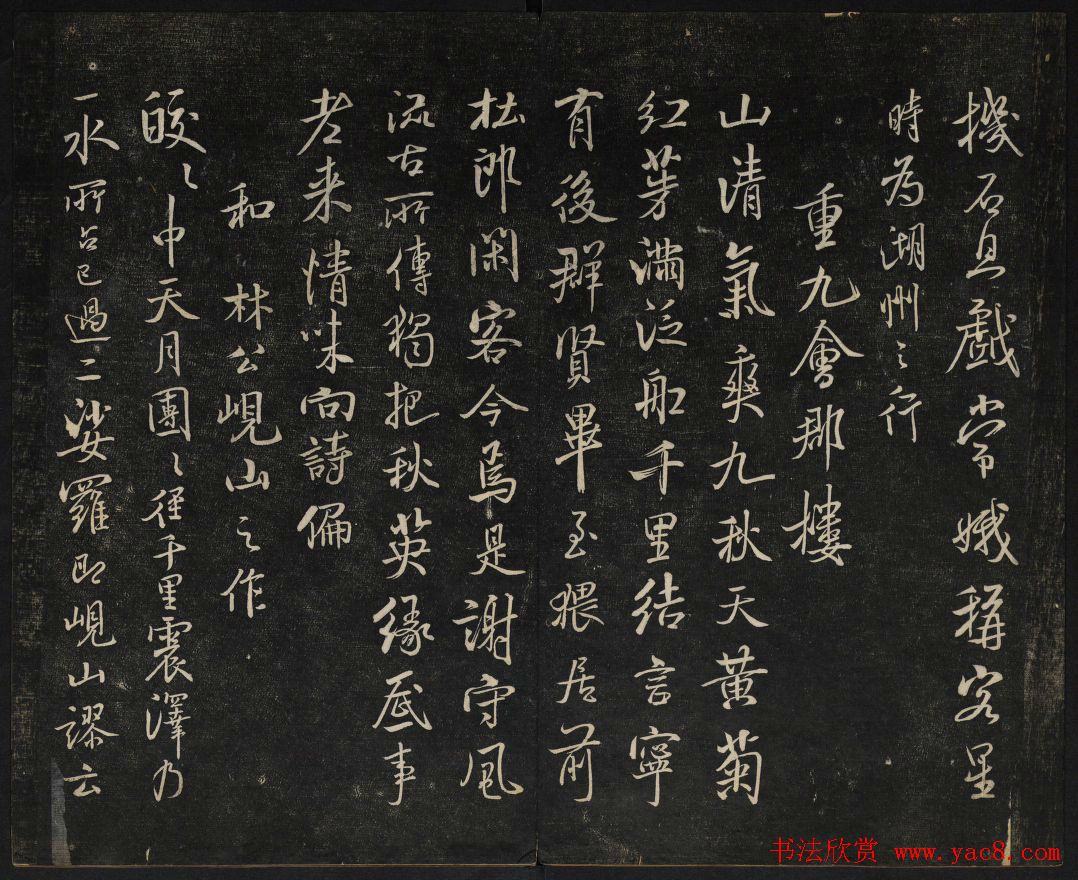 機石息戲常娥稱客星
時為湖州之行
重九會郡樓
山清氣爽九秋天黄菊
紅茱滿泛船千里結言寧
有後群賢畢至猥居前
杜郎閑客今焉是謝守風
流古所傳獨把秋英緣底事
老来情味向詩偏
和林公峴山之作
皎〻中天月團〻徑千里震澤乃
一水所占已過二娑羅即峴山謬云
书法欣赏 www.yac8.com